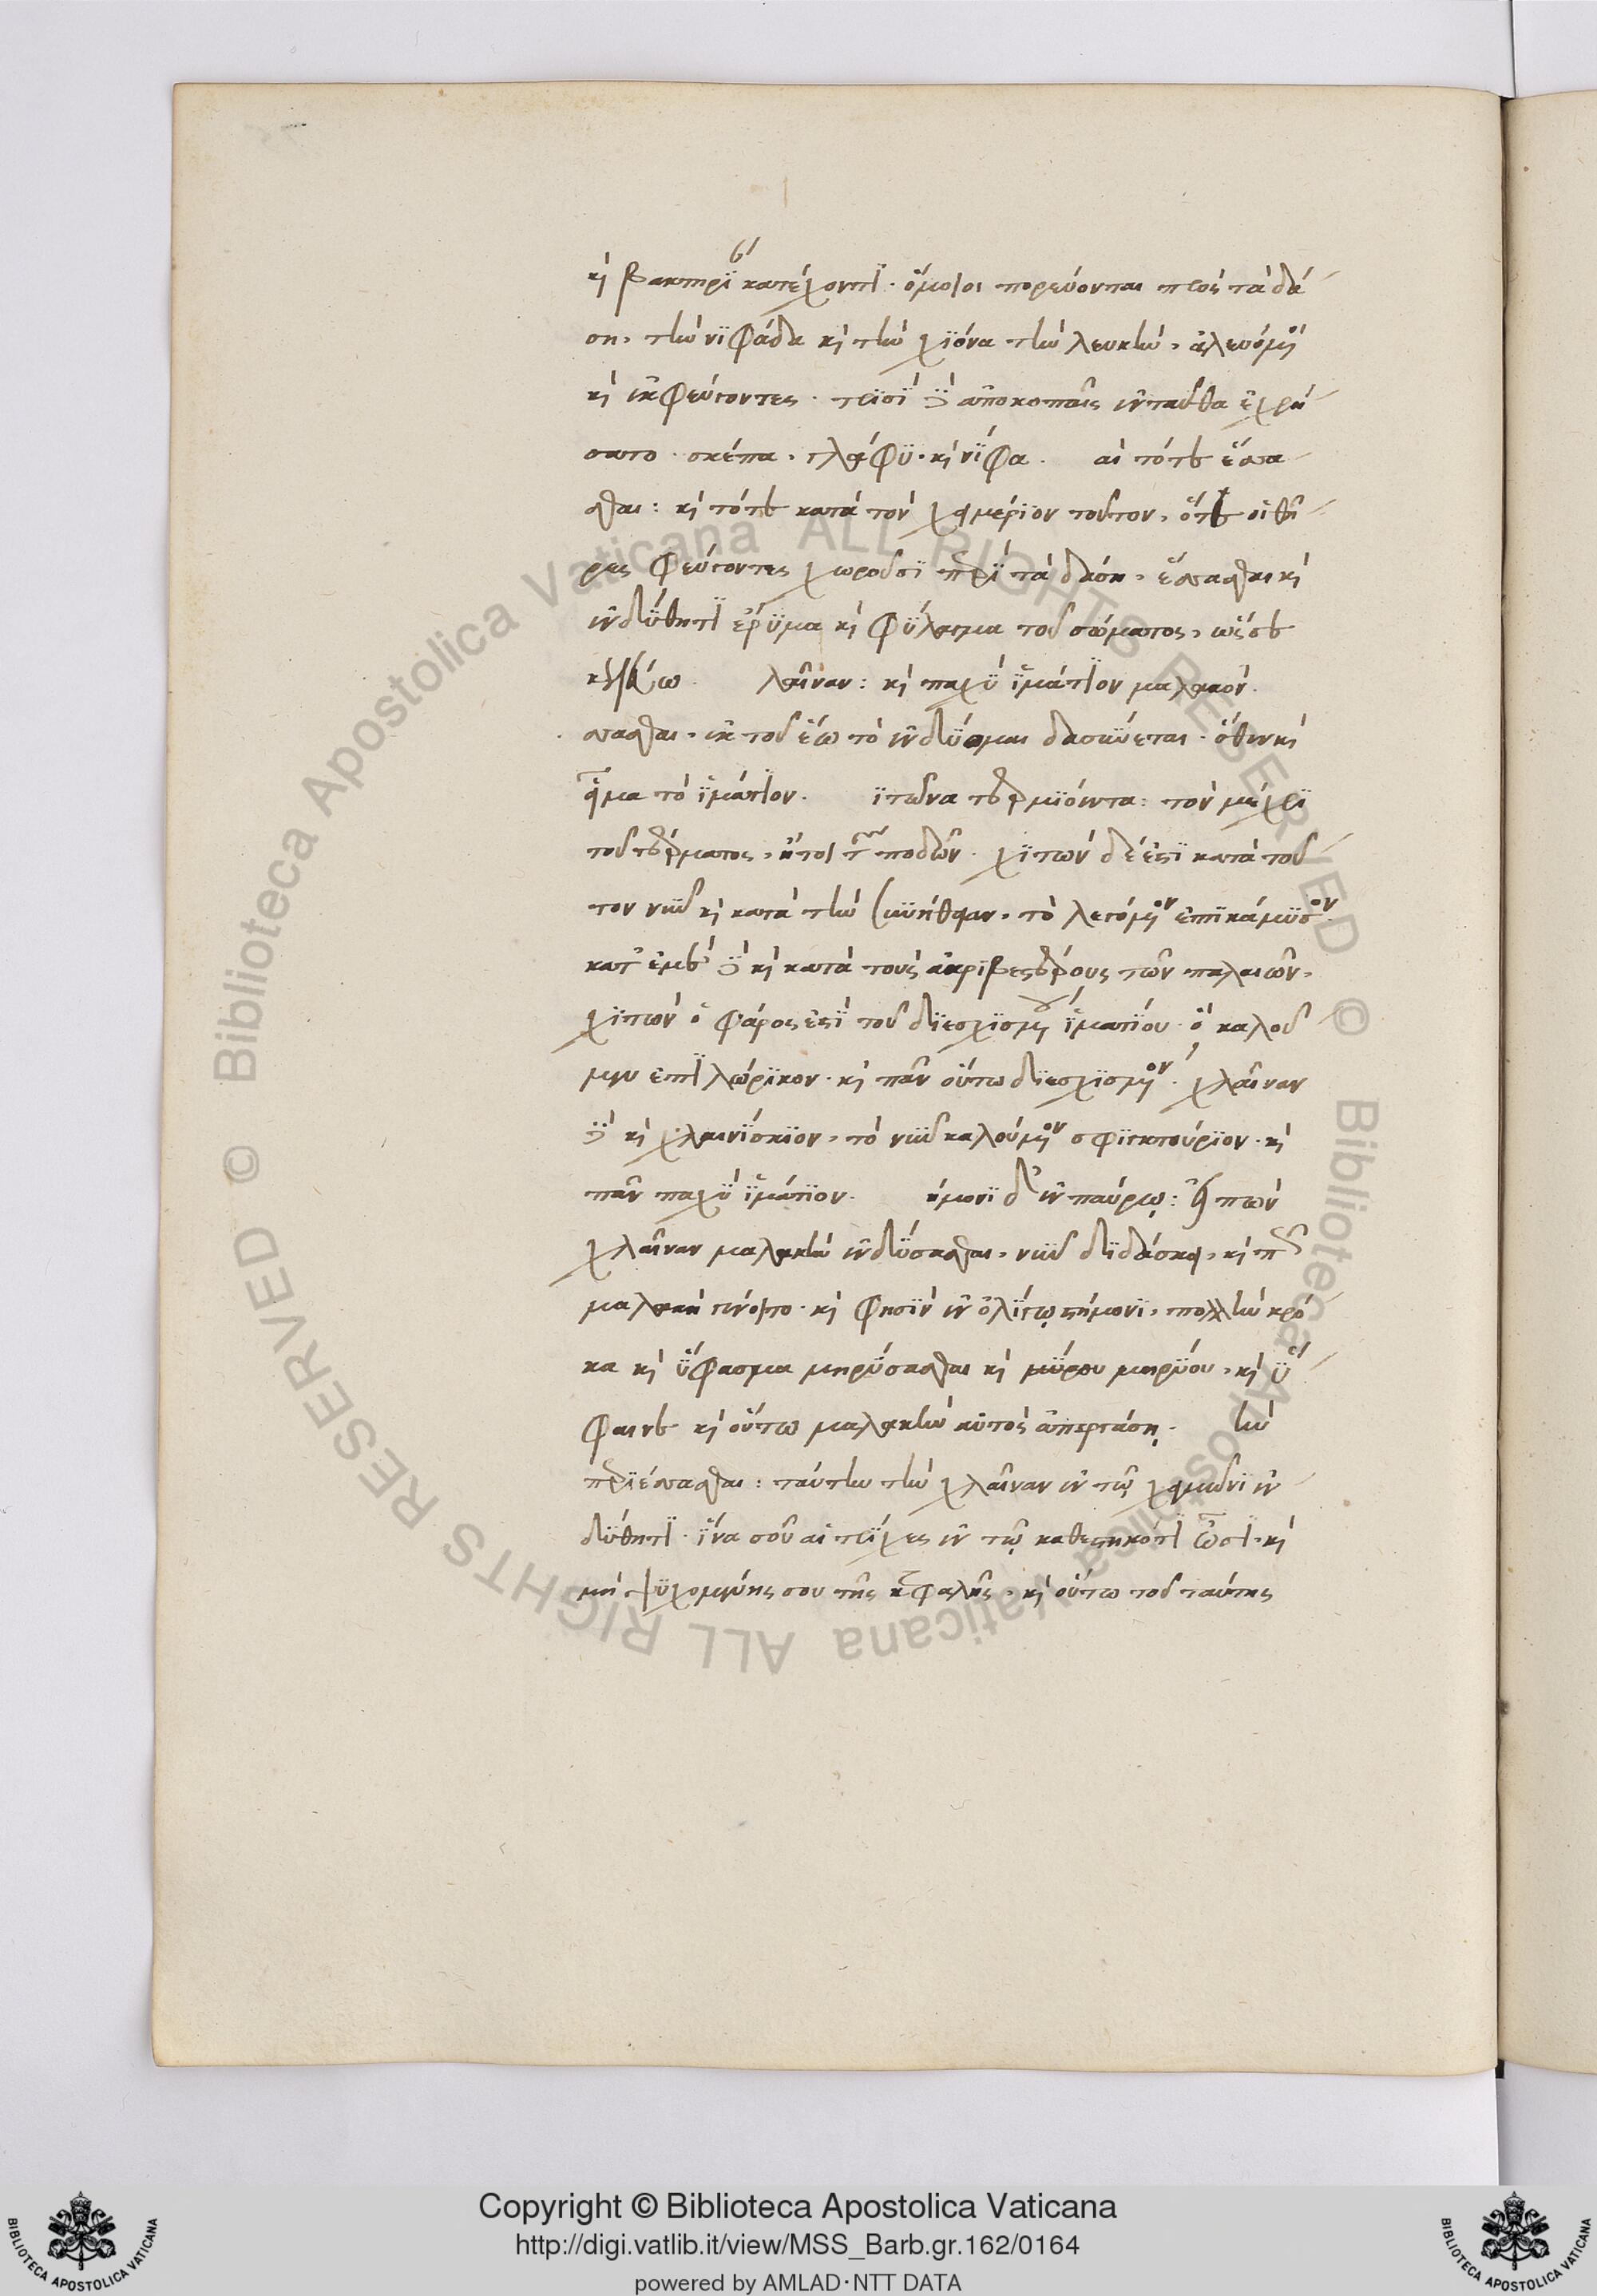 κὶ βακτηρί κατέχοντϊ. ὅμοιοι πορεύονται πρὸς τὰ δά
ση, τὴν νιφάδα κὶ τὴν χϊόνα τὴν λευκὴν, ἀλευόμενοι
κὶ ἐκφεύγοντες. τρισὶ δὲ ἀποκοπαῖς ἐνταῦθα ἐχρή
σατο. σκέπα, γλάφυ, κὶ νίφα. αὶ τότε ἕσσα
σθαι: κὶ τότε κατὰ τὸν χειμέριον τοῦτον, ὅτε οἱ θῆ
ρες φεύγοντες χωροῦσϊ περὶ τὰ δάση, ἕσσασθαι κὶ
ἐνδύθητϊ ἔρυμα κὶ φύλαγμα τοῦ σώματος, ὥς σε
κελεύω. λαῖναν: κὶ παχὺ ἱμάτϊον μαλακόν.
σσασθαι, ἐκ τοῦ ἕω τὸ ἐνδύομαι δασύνεται. ὅθεν κὶ
εἷμα τὸ ἱμάτϊον. ϊτῶνα τερμιόεντα: τὸν μέχρϊ
τοῦ τέρματος, ἤτοι τῶν ποδῶν. χϊτὼν δέ ἐστϊ κατὰ τοῦ
τον νῦν κὶ κατὰ τὴν συνήθειαν, τὸ λεγόμενον ἐπικάμισον.
κατ' ἐμὲ δὲ κὶ κατὰ τοὺς ἀκριβεστέρους τῶν παλαιῶν,
χιτὼν ὁ φάρος ἐστὶ τοῦ διεσχισμένου ἱματίου. ὃ καλοῦ
μεν ἐπϊλώρικον. κὶ πᾶν οὕτω διεσχισμένον. χλαῖναν
δὲ κὶ χλαινίσκιον, τὸ νῦν καλούμενον σφιγκτούριον. κὶ
πᾶν παχὺ ἱμάτιον. ήμονϊ δ' ἐν παύρῳ: εἰπὼν
χλαῖναν μαλακὴν ἐνδύσασθαι, νῦν διδάσκει, κὶ πῶς
μαλακὴ γένοιτο. κὶ φησὶν ἐν ὀλίγῳ στήμονϊ, πολλὴν κρό
κα κὶ ὕφασμα μηρύσασθαι κὶ μύρου μηρύου, κὶ ὕ
φαινε κὶ οὕτω μαλακὴν αὐτὸς ἀπεργάσῃ. ὴν
περιέσσασθαι: ταύτην τὴν χλαῖναν ἐν τῷ χειμῶνϊ ἐν
δύθητϊ. ἵνα σοῦ αἱ τρίχες ἐν τῷ καθεστηκότϊ ὦσϊ. κὶ
μὴ ψυχομένης σου τῆς κεφαλῆς, κὶ οὕτω τοῦ ταύτης
Copyright © Biblioteca Apostolica Vaticana
http://digi.vatlib.it/view/MSS_Barb.gr.162/0164
powered by AMLAD·NTT DATA